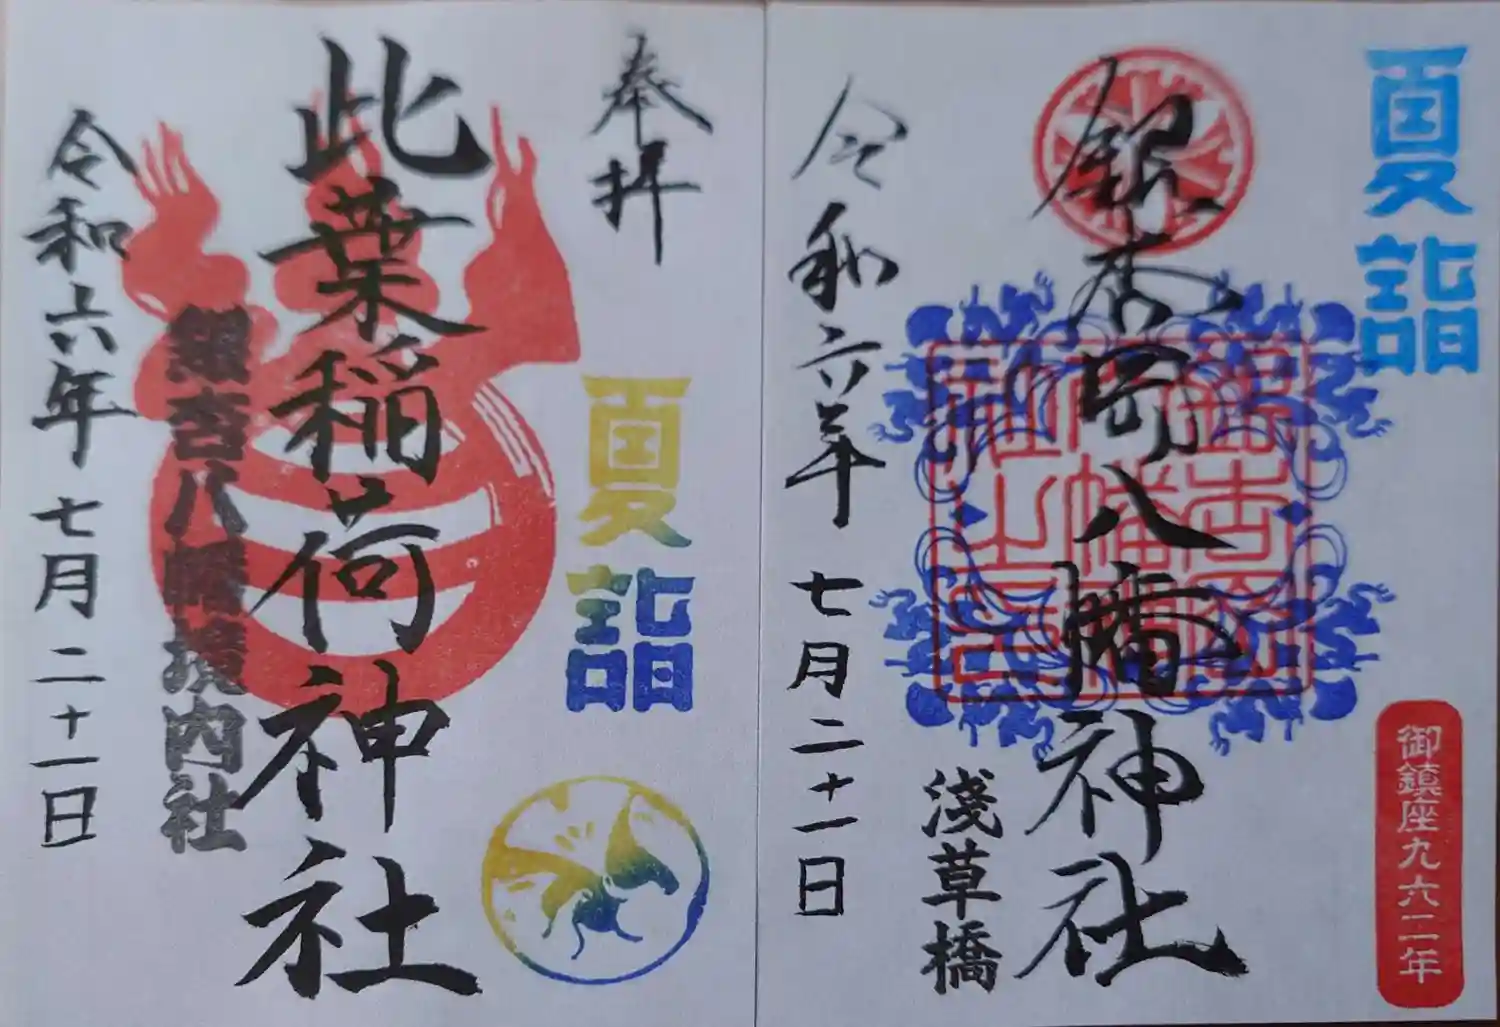 夏詣
御鎮座九六二年
銀杏岡八幡神社
銀杏岡
八幡神
社之印
淺草橋
令和六年 七月二十一日
奉拝
夏詣
此葉稲荷神社
銀杏八幡境内社
令和六年 七月二十一日